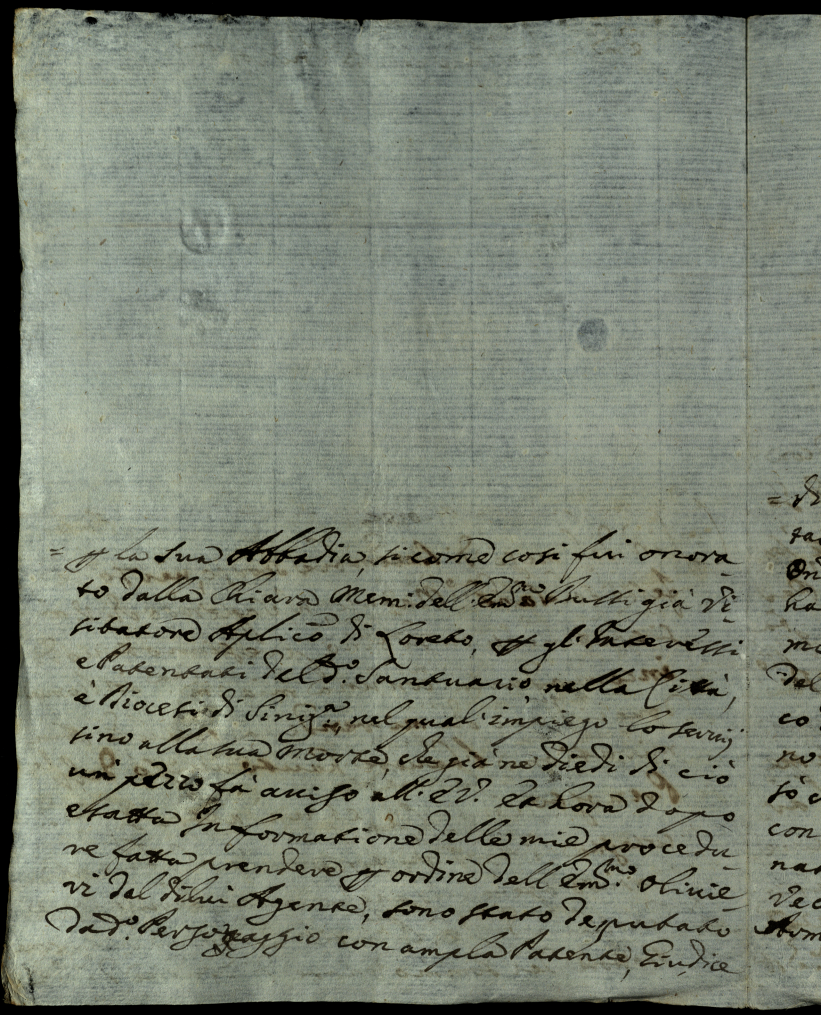 = p la sua Abbadia, sicome così fui onora-
to dalla Chiara Mem: dell' Em.mo Bussi già Vi-
sitatore Aplico di Loreto, p gl' Interessi
e Patentati del d.o Santuario nella Città,
è Diocesi di Sinig.a, nel qual' impiego lo servij
sino alla sua morte, che già ne diedi di ciò
un pezzo fà auiso all' EV. Et hora dopo
esatta Informatione delle mie procedu-
re fatta prendere p ordine dell' Em.mo Oliuie-
ri dal dilui Agente, sono stato deputato
da d.o Personaggio con ampla Patente, Giudice
= di
ha
mo
del
co
no
sò
con
nat